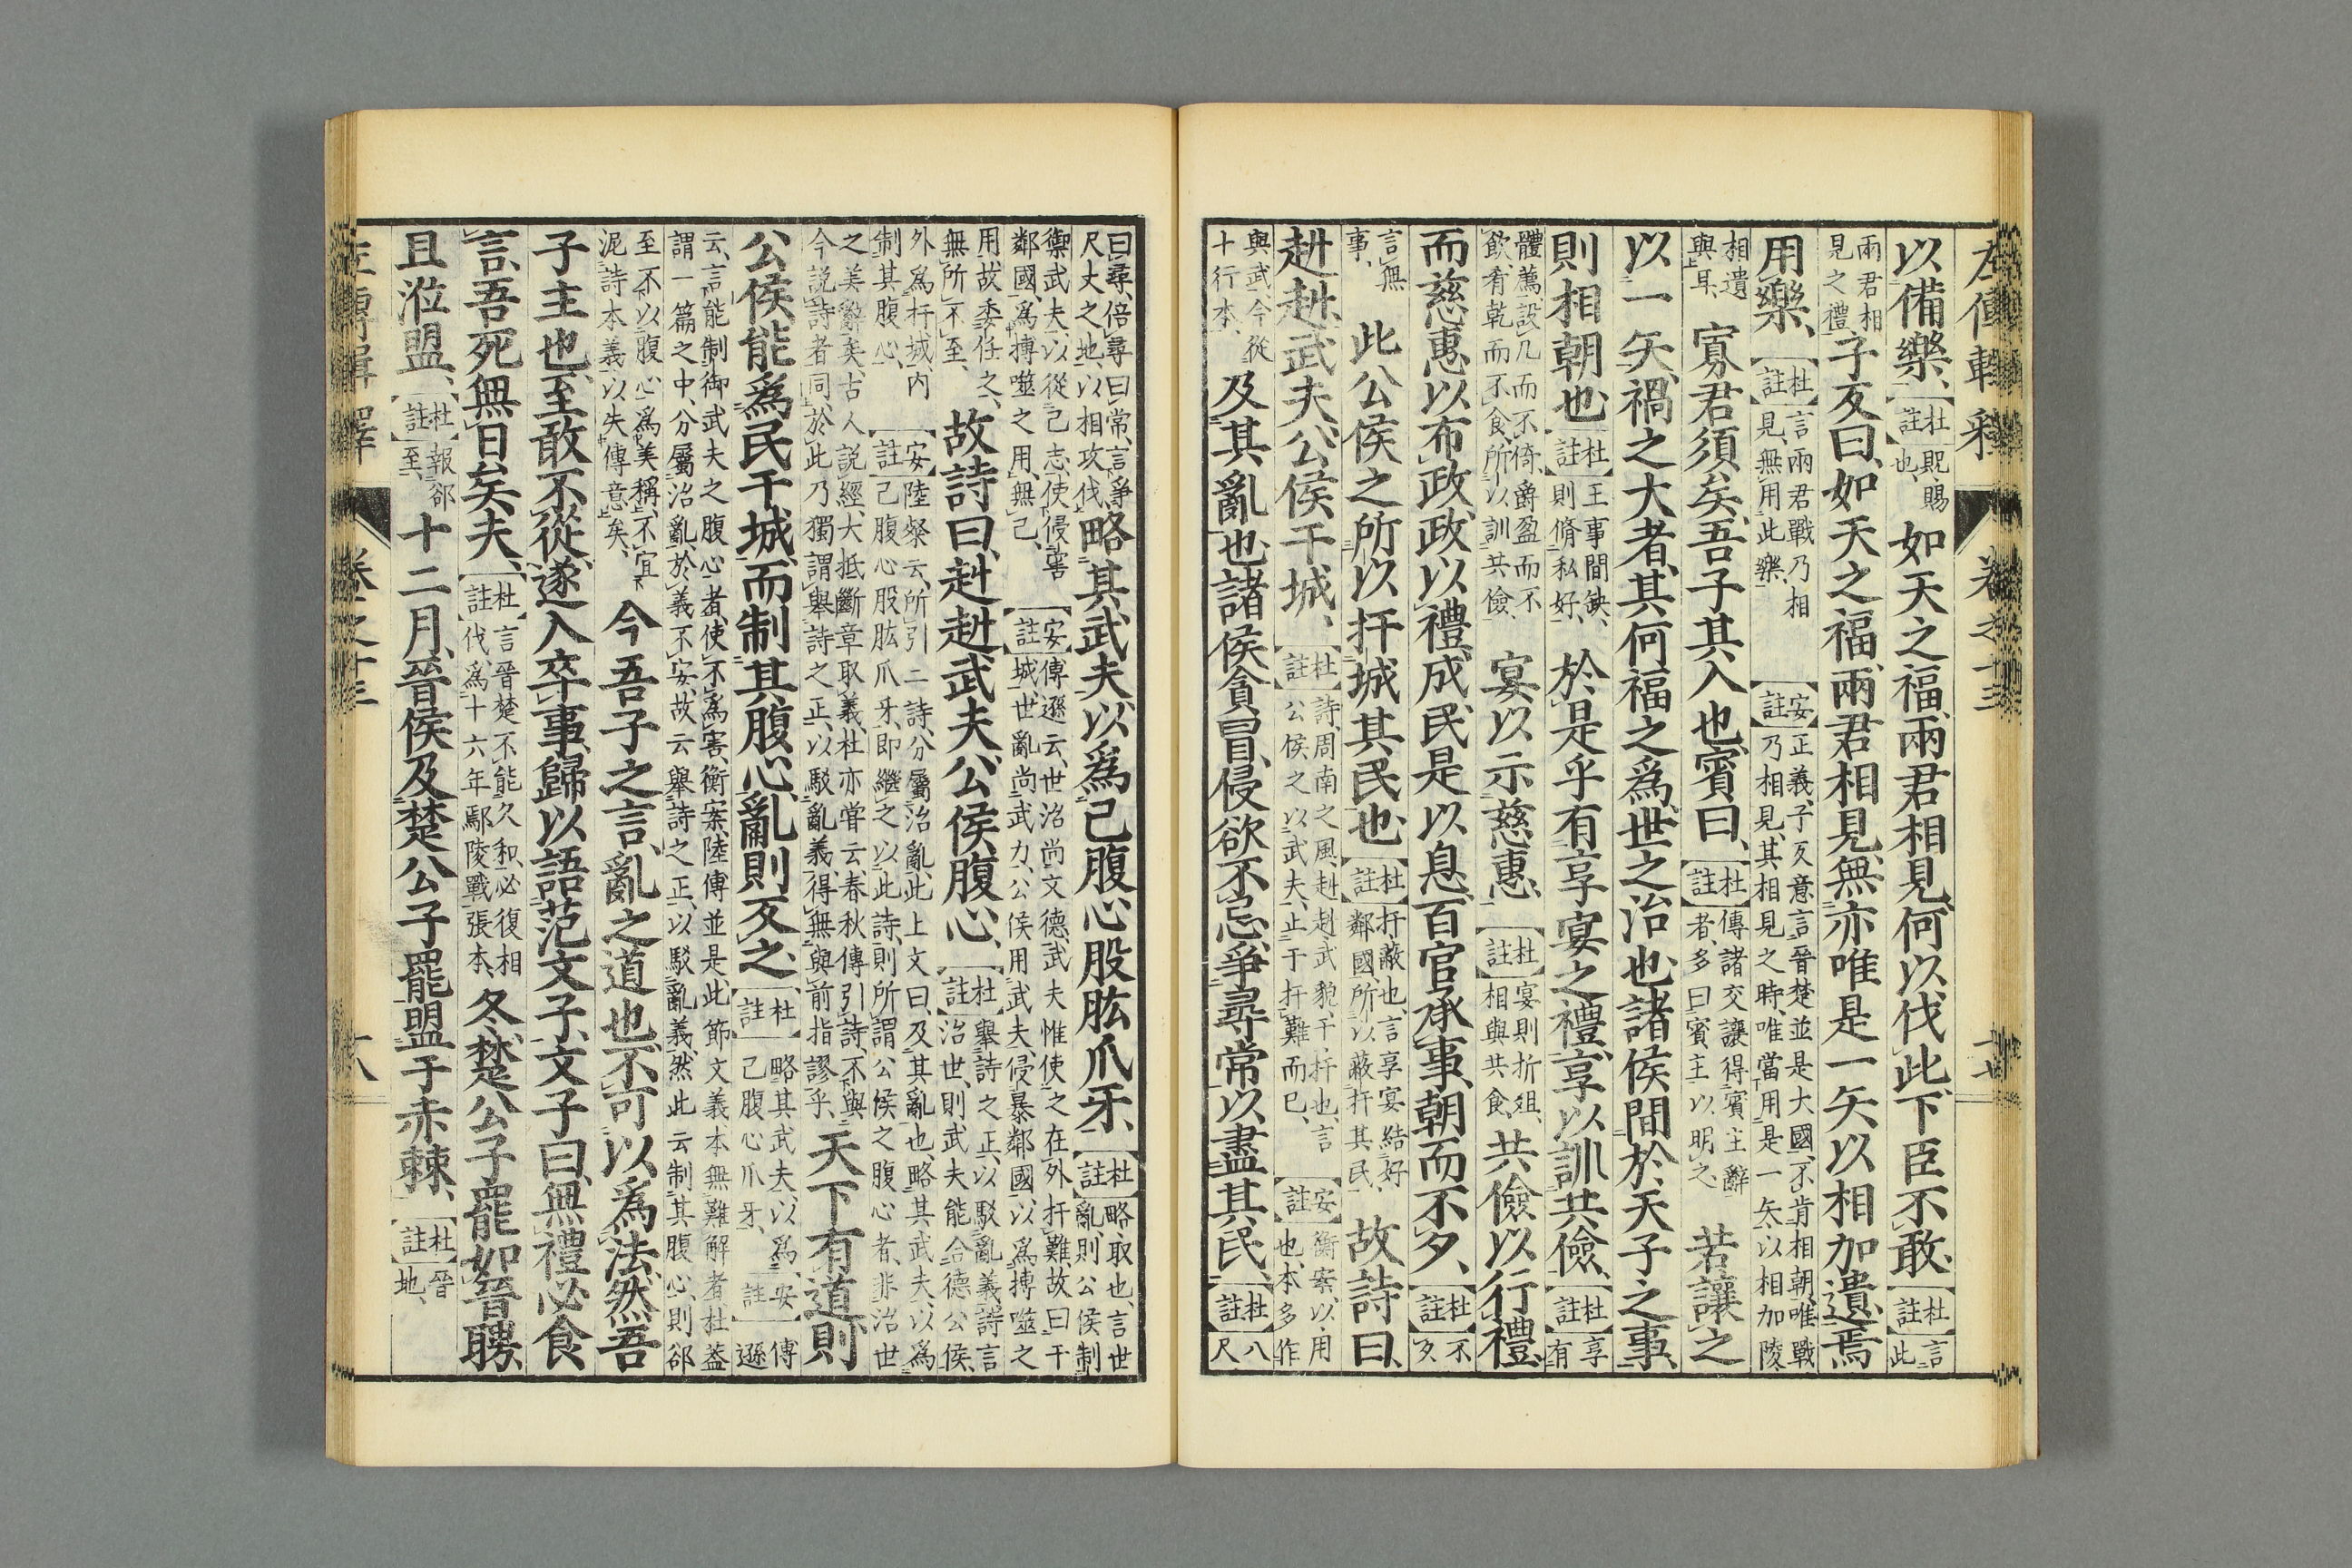 左傳輯釋 卷之十三 十七
以備樂、【杜註】貺、賜也、如天之福、兩君相見、何以代此、下臣不敢、【杜註】言此
兩君相見之禮、子反曰、如天之福、兩君相見、無亦唯是一矢以相加遺、焉
用樂、【杜註】言兩君戰乃相見、無用此樂、【安註】正義、子反意言晉楚並是大國、不肯相朝、唯戰乃相見、其相見之時、唯當用是一矢、以相加陵
相遺與耳、寡君須矣、吾子其入也、賓曰、【杜註】傳諸交讓得賓主辭者、多曰賓主以明之、若讓之
以一矢、禍之大者、其何福之爲、世之治也、諸侯間於天子之事、
則相朝也、【杜註】王事間缺、則脩私好、於是乎有享宴之禮、享以訓共儉、【杜註】享有
體薦、設几而不倚、爵盈而不飲、肴乾而不食、所以訓共儉、宴以示慈惠、【杜註】宴則折俎、相與共食、共儉以行禮、
而慈惠以布政、政以禮成、民是以息、百官承事、朝而不夕、【杜註】不夕
言無事、此公侯之所以扞城其民也、【杜註】扞蔽也、言享宴結好鄰國、所以蔽扞其民、故詩曰、
赳赳武夫、公侯干城、【杜註】詩、周南之風、赳赳武貌、干、扞也、言公侯之以武夫、止于扞難而已、【安註】衡案、以用也、本多作
與武、今從十行本、及其亂也、諸侯貪冒、侵欲不忌、爭尋常以盡其民、【杜註】八尺
曰尋、倍尋曰常、言爭尺丈之地、以相攻伐、略其武夫、以爲己腹心股肱爪牙、【杜註】略取也、言世亂則公侯制
禦武夫、以從己志、使侵害鄰國、爲搏噬之用無已、【安註】傅遜云、世治尚文德、武夫惟使之在外扞難、故曰干城、世亂尚武力、公侯用武夫、侵暴鄰國、以爲搏噬之
用、故委任之、無所不至、故詩曰、赳赳武夫、公侯腹心、【杜註】舉詩之正、以駁亂義、詩言治世、則武夫能合德公侯、
外爲扞城、内制其腹心、【安註】陸粲云、所引二詩、分屬治亂、此上文曰、及其亂也、略其武夫、以爲己腹心股肱爪牙、即繼之以此詩、則所謂公侯之腹心者、非治世
之美辭矣、古人説經、大抵斷章取義、杜亦甞云、春秋傳引詩、不與今説詩者同、於此乃獨謂舉詩之正、以駁亂義、得無與前指謬乎、天下有道、則
公侯能爲民干城、而制其腹心、亂則反之、【杜註】略其武夫、以爲己腹心爪牙、【安註】傅遜
云、言能制御武夫之腹心者、使不爲害、衡案、陸傅並是、此節文義本無難解者、杜蓋謂一篇之中、分屬治亂、於義不安、故云舉詩之正、以駁亂義、然此云制其腹心、則郤
至不以腹心爲美稱、不宜泥詩本義以失傳意矣、今吾子之言、亂之道也、不可以爲法、然吾
子主也、至敢不從、遂入卒事、歸以語范文子、文子曰、無禮必食
言、吾死無日矣夫、【杜註】言晉楚不能久和、必復相伐、爲十六年鄢陵戰張本、冬、楚公子罷如晉聘、
且涖盟、【杜註】報郤至、十二月、晉侯及楚公子罷盟于赤棘、【杜註】晉地、
左傳輯釋 卷之十三 十八